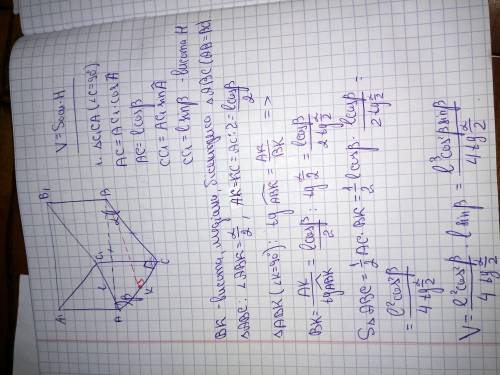 V=Sосн·H
1. ΔC₁CA (∠C=90°)
AC=AC₁·cosA
AC=lcosβ
CC₁=AC₁sinA
CC₁=lsinβ - висота H
A₁
B₁
C₁
l
A
B
β
α
K
C
BK - висота, медіана, бісектриса ΔABC (AB=BC)
ΔABC: ∠ABK=α/2, AK=KC=AC:2=lcosβ/2
ΔABK (∠K=90°): tg ABK=AK/BK =>
BK=AK/tgABK=lcosβ/2 : tg α/2=lcosβ/2tg α/2
SΔABC=1/2 AC·BK=1/2 lcosβ·lcosβ/2tg α/2=
=l²cos²β/4tg α/2
V=l²cos²β/4tg α/2 lsinβ=l³cos²βsinβ/4tg α/2